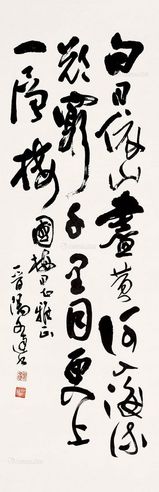 白日依山盡黃河入海流
欲窮千里目更上
一層樓
國梅同志雅正
晉陽